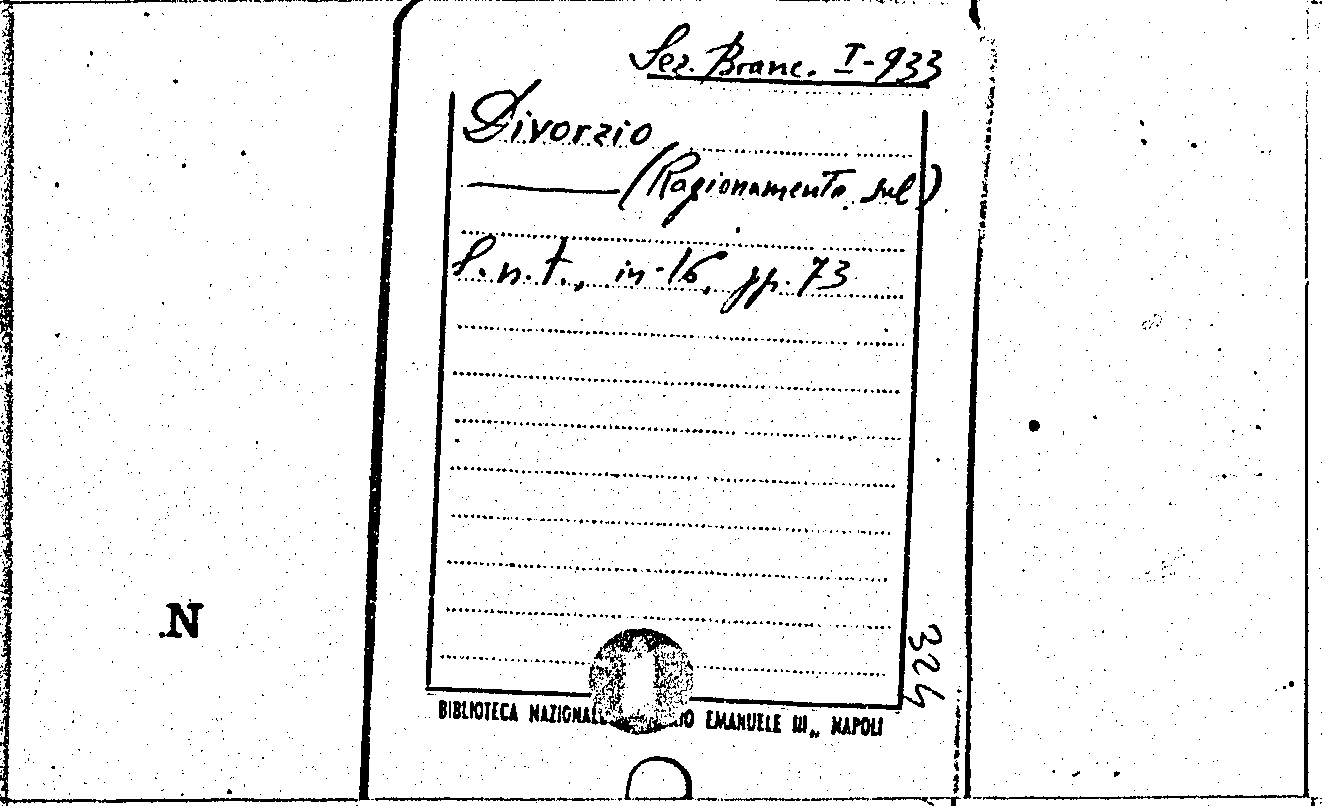 Sez. Branc. I-933
Divorzio
——— (Ragionamento sul)
S.n.t., in-16, pp. 73
N
324
BIBLIOTECA NAZIONALE EMANUELE III „ NAPOLI